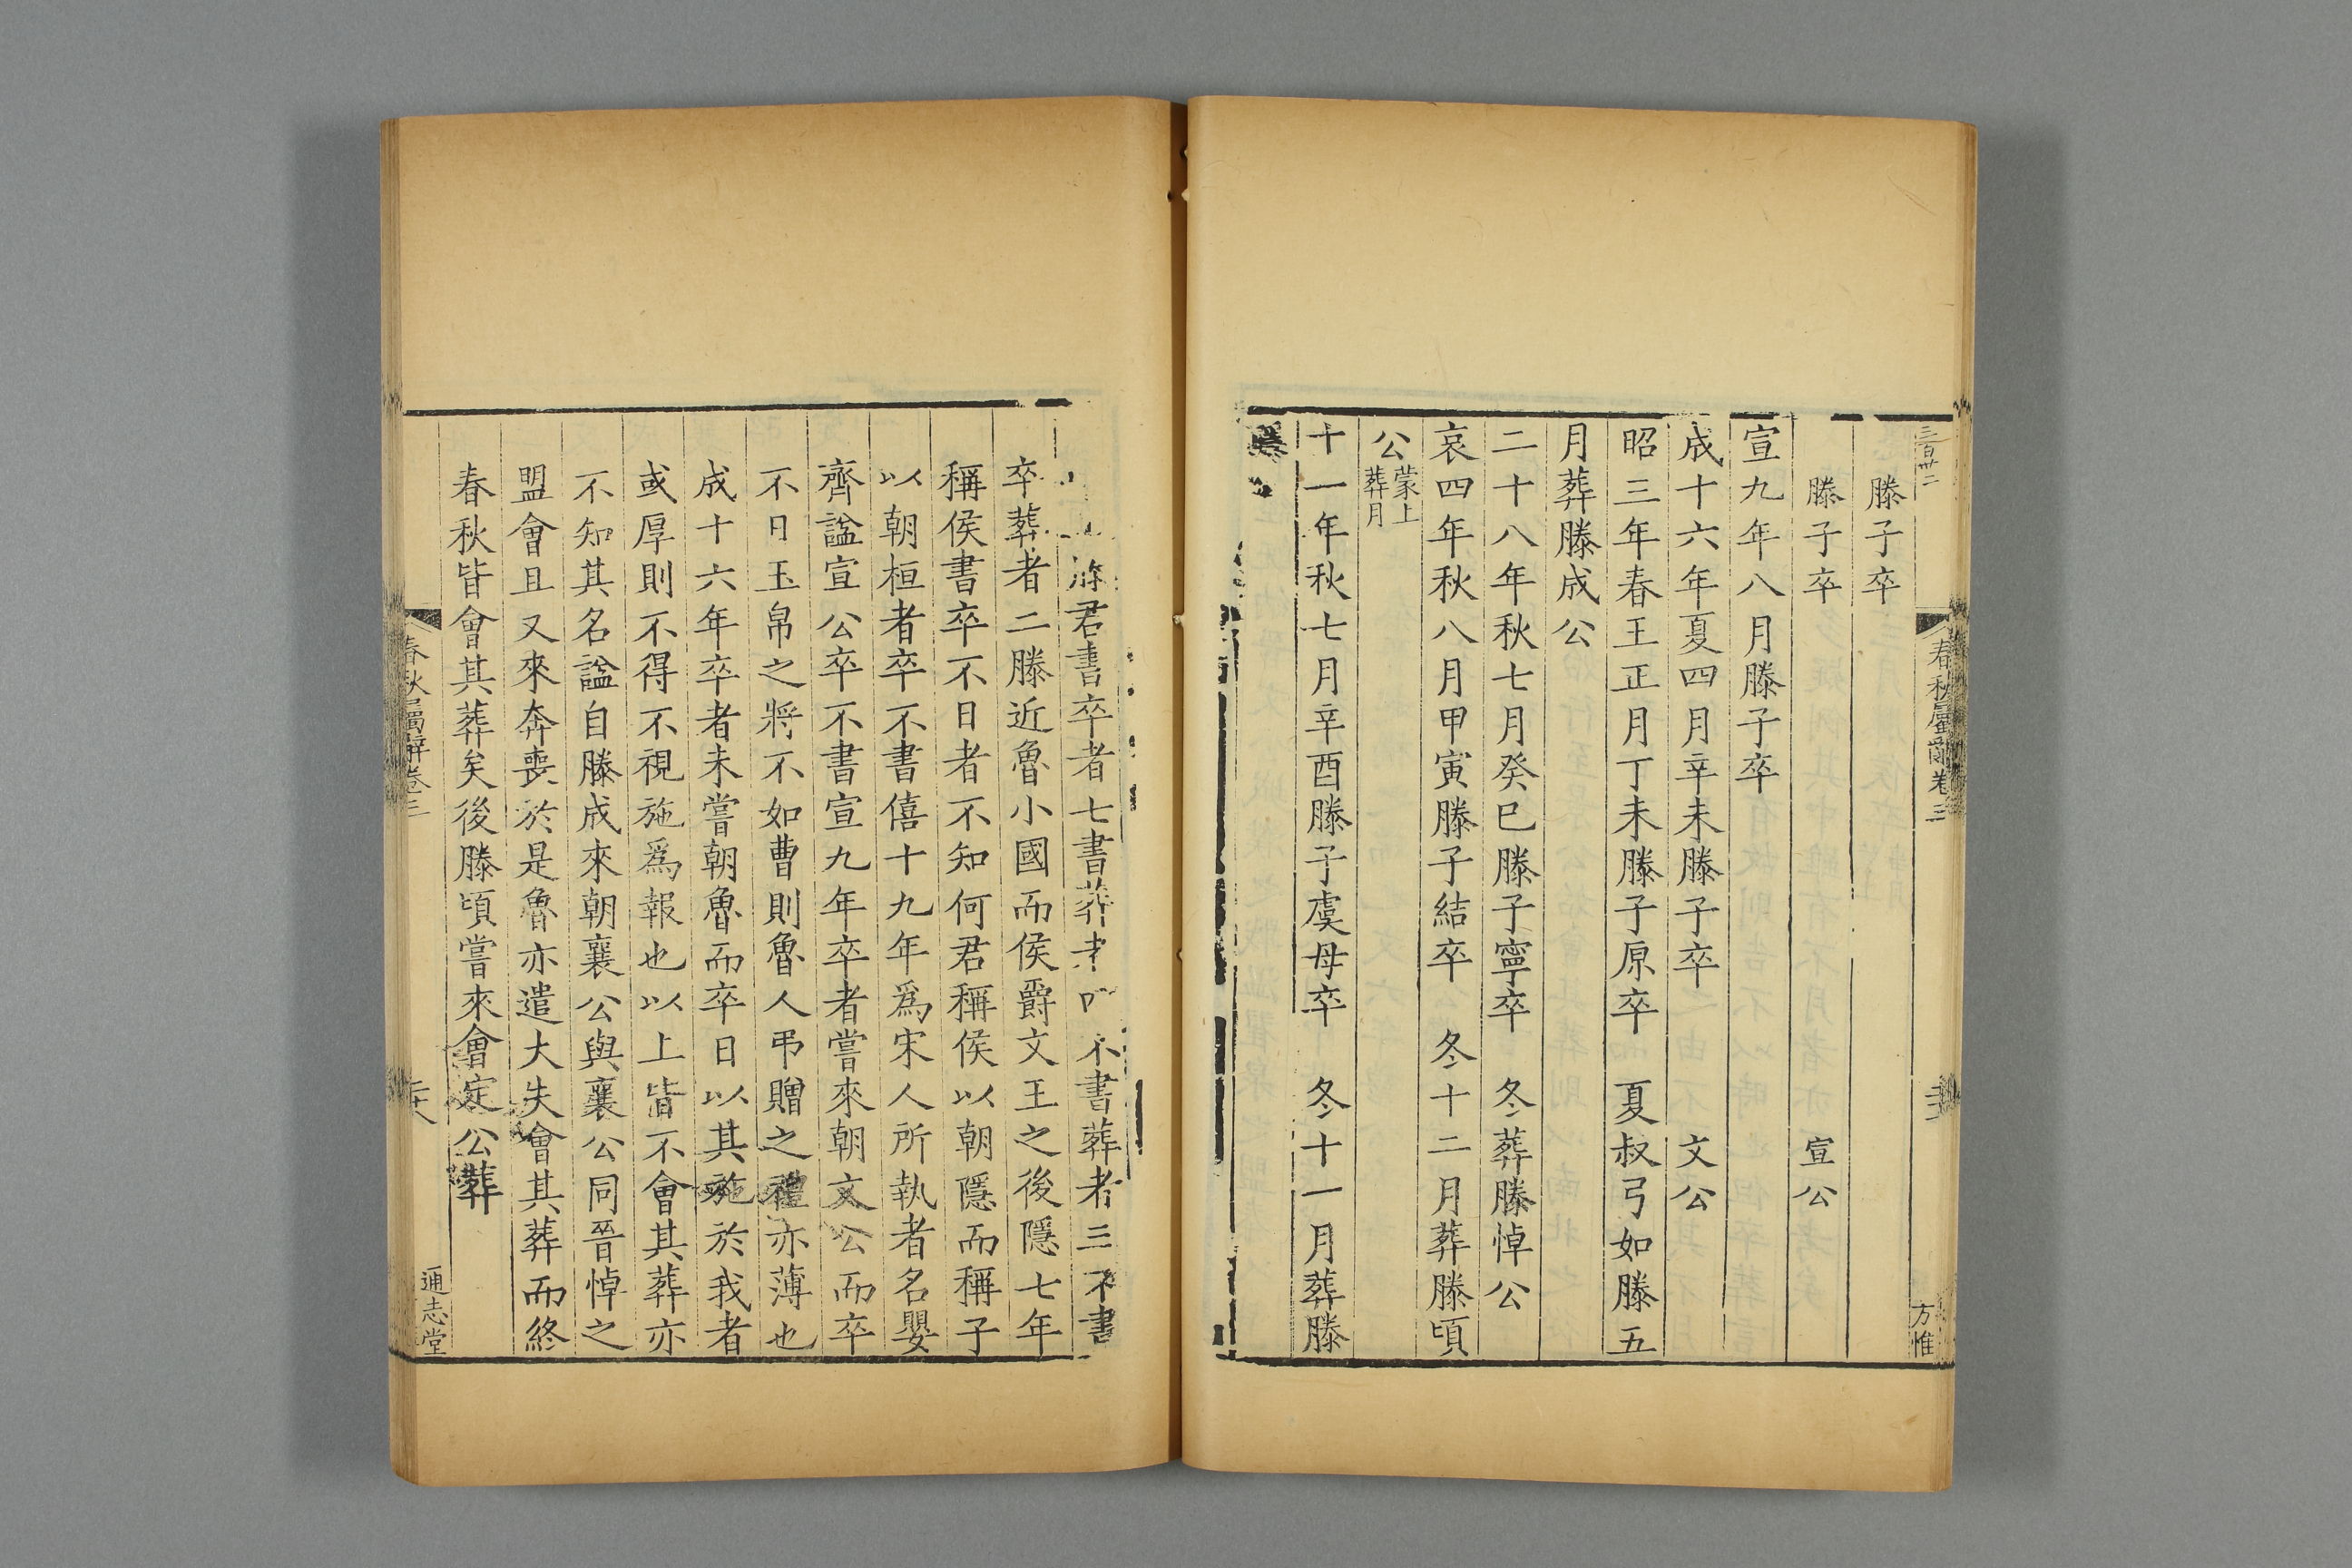 春秋屬辭卷三
方惟
滕子卒
滕子卒　宣公
宣九年八月滕子卒
成十六年夏四月辛未滕子卒　文公
昭三年春王正月丁未滕子原卒　夏叔弓如滕五
月葬滕成公
二十八年秋七月癸巳滕子寧卒　冬葬滕悼公
哀四年秋八月甲寅滕子結卒　冬十二月葬滕頃
公蒙上葬月
十一年秋七月辛酉滕子虞母卒　冬十一月葬滕
滕君書卒者七書葬者　不書葬者三不書
卒葬者二滕近魯小國而侯爵文王之後隱七年
稱侯書卒不日者不知何君稱侯以朝隱而稱子
以朝桓者卒不書僖十九年爲宋人所執者名嬰
齊諡宣公卒不書宣九年卒者嘗來朝文公而卒
不日玉帛之將不如曹則魯人弔贈之禮亦薄也
成十六年卒者未嘗朝魯而卒日以其施於我者
或厚則不得不視施爲報也以上皆不會其葬亦
不知其名諡自滕成來朝襄公與襄公同晉悼之
盟會且又來奔喪於是魯亦遣大夫會其葬而終
春秋皆會其葬矣後滕頃嘗來會定公葬
春秋屬辭卷三
通志堂